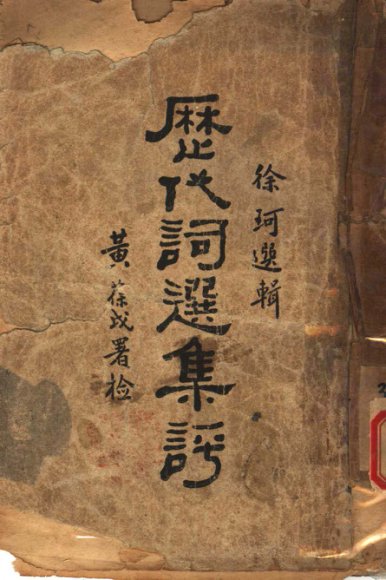 徐珂選輯
歷代詞選集評
黃葆戉署检